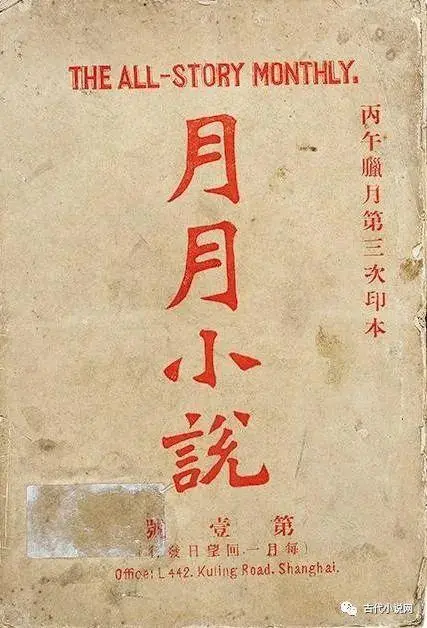 THE ALL-STORY MONTHLY.
丙午臘月第三次印本
月月小説
第壹號
（每月一回望日發行）
Office: L 442. Kuling Road. Shanghai.
古代小说网